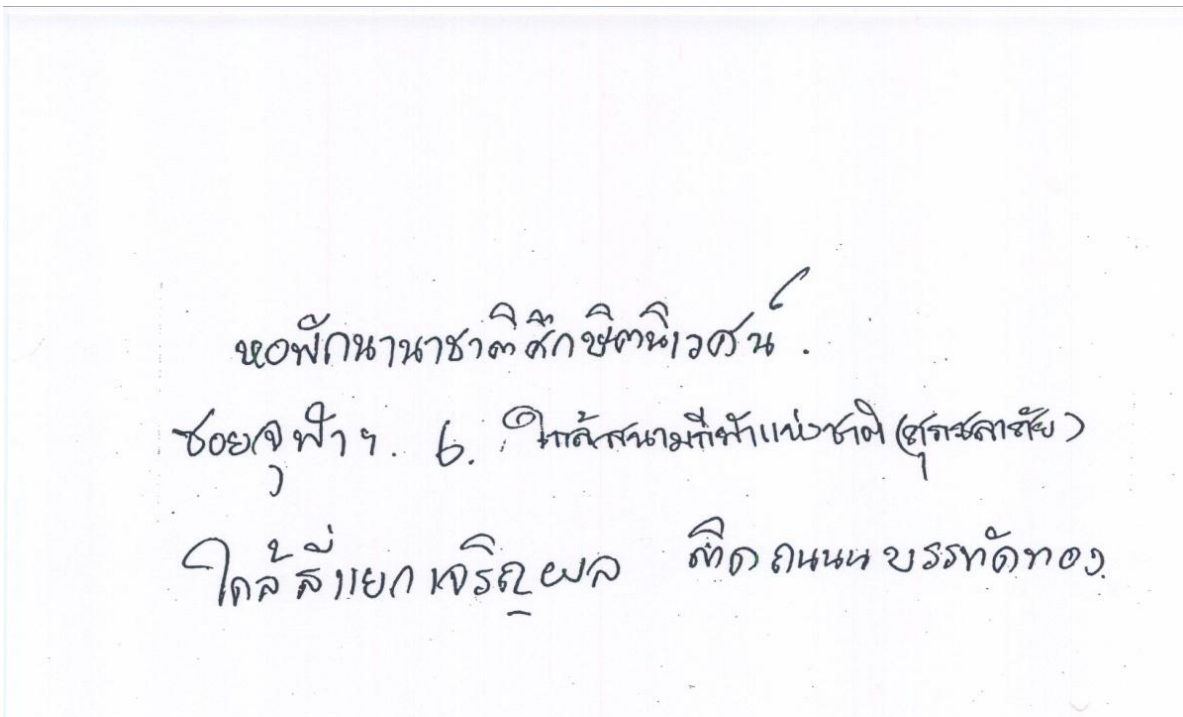 หอพักนานาชาติศึกษิตนิเวศน์.
ซอยจุฬาฯ. 6. ใกล้สนามกีฬาแห่งชาติ (ศุภชลาศัย)
ใกล้สี่แยกเจริญผล ติดถนนบรรทัดทอง.